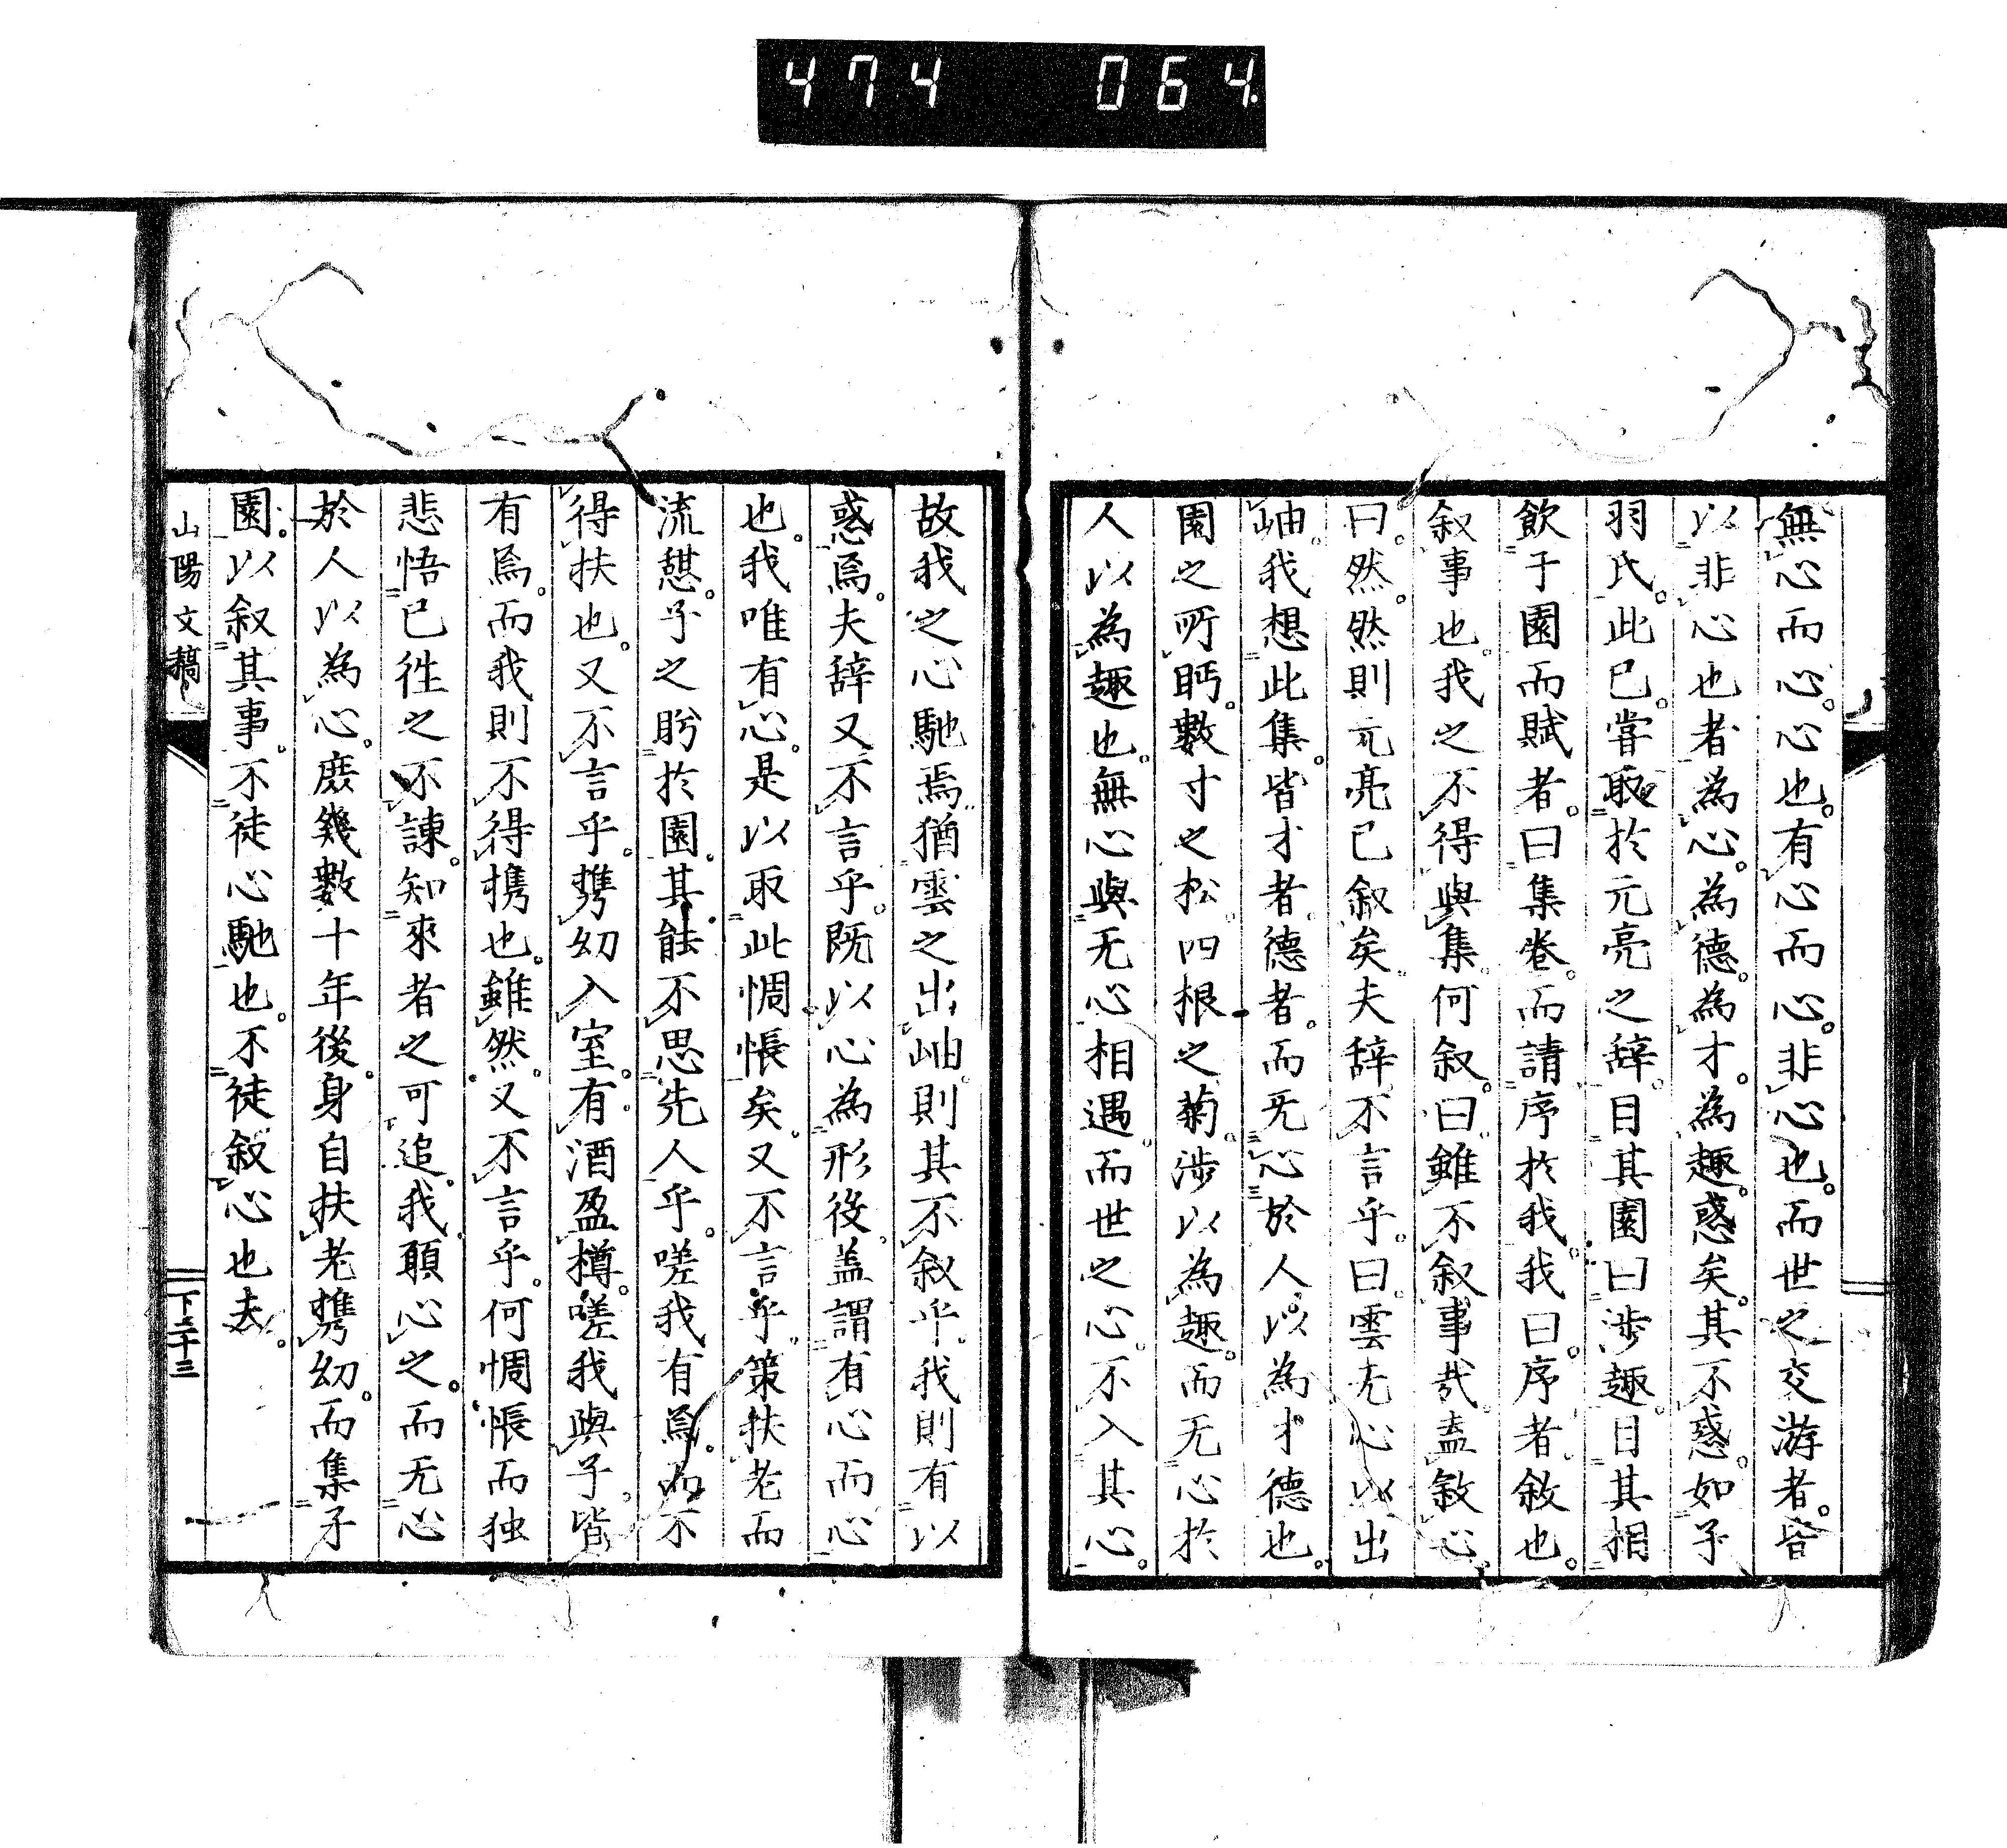 474 064
無心而心。心也。有心而心。非心也。而世之交游者。皆
以非心也者為心。為德。為才。為趣。惑矣。其不惑。如子
羽氏。此已。嘗取於元亮之辞。目其園曰涉趣。目其相
飲于園而賦者。曰集卷。而請序於我。我曰。序者。敘也。
叙事也。我之不得與集。何叙。曰。雖不叙事哉。盍敘心。
曰。然。然則元亮已叙矣。夫辞不言乎。曰。雲无心以出
岫。我想此集。皆才者。德者。而无心於人以為才德也。
園之所眄。數寸之松。四根之菊。涉以為趣。而无心於
人以為趣也。無心與无心相遇。而世之心。不入其心。
故我之心馳焉。猶雲之出岫。則其不叙乎。我則有以
惑焉。夫辞又不言乎。既以心為形役。盖謂有心而心
也。我唯有心。是以取此惆悵矣。又不言乎。策扶老而
流憇。子之盻於園。其能不思先人乎。嗟我有焉。而不
得扶也。又不言乎。携幼入室。有酒盈樽。嗟我與子。皆
有焉。而我則不得携也。雖然。又不言乎。何惆悵而独
悲悟已徃之不諫。知來者之可追。我願心之。而无心
於人以為心。庶幾數十年後。身自扶老携幼。而集子
園。以叙其事。不徒心馳也。不徒叙心也夫。
山陽文稿
下之十三